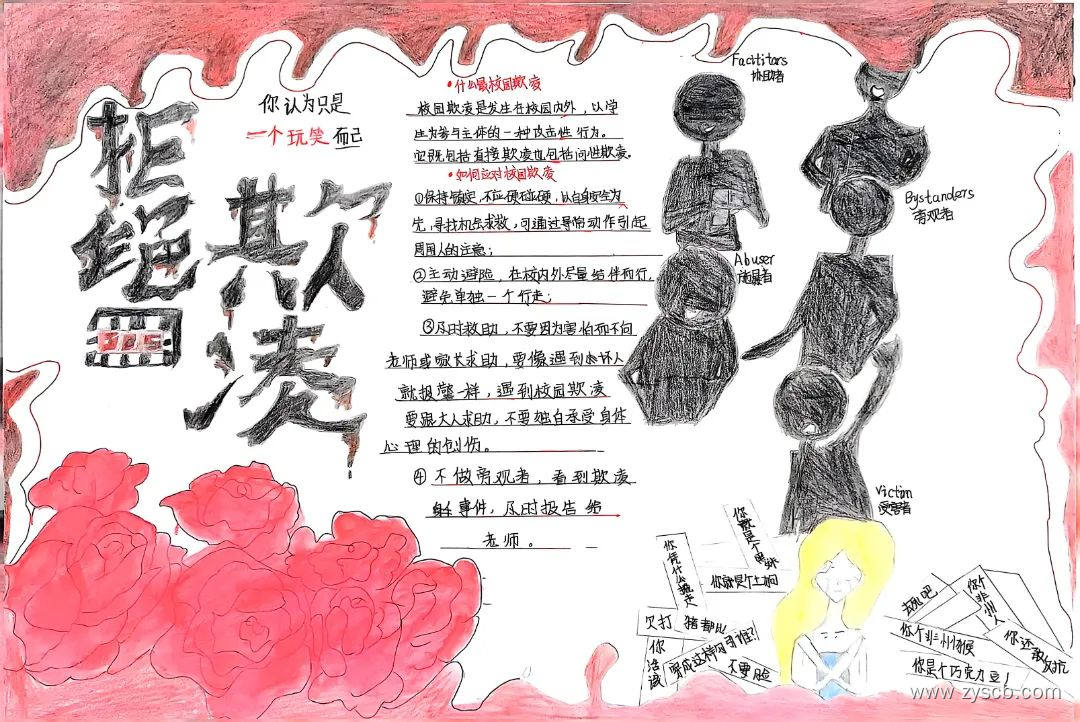 拒绝
欺凌
SOS
你认为只是
一个玩笑而己
•什么是校园欺凌
校园欺凌是发生在校园内外，以学
生为参与主体的一种攻击性行为。
它既包括直接欺凌也包括间性欺凌。
•如何应对校园欺凌
①保持镇定，不应硬碰硬，以自身安全为
先，寻找机会求救，可通过异常动作引起
周围人的注意；
②主动避险，在校内外尽量结伴而行，
避免单独一个行走；
③及时救助，不要因为害怕而不向
老师或家长求助，要像遇到坏人
就报警一样，遇到校园欺凌
要跟大人求助，不要独自承受身体
心理的创伤。
④不做旁观者，看到欺凌
事件，及时报告给
老师。
Facititars
协助者
Bystanders
旁观者
Abuser
施暴者
Victim
受害者
你凭什么
你就是个
你就是个土狗
欠打
猪都比
你活该
穿成这样勾引谁?!
不要脸
去死吧
你个非洲人
你个非州猴
你还敢反抗
你是个巧克力豆！
www.zyscb.com